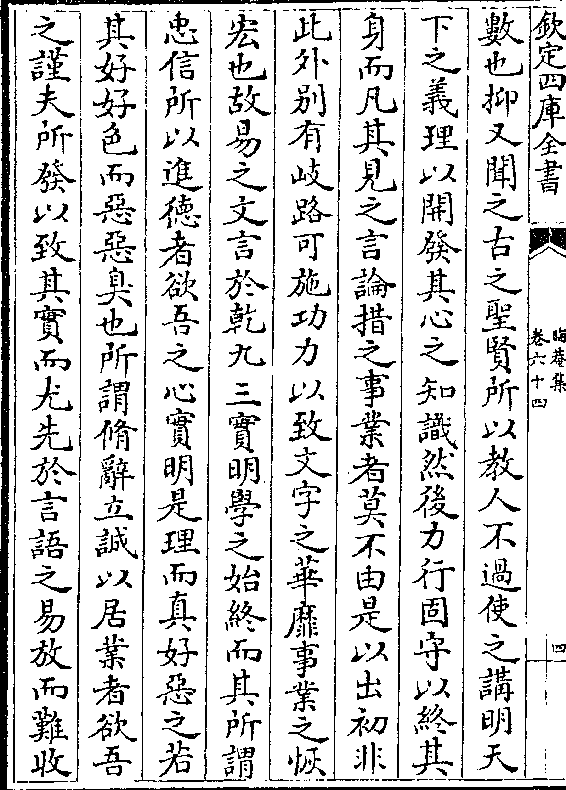 欽定四庫全書
晦菴集
卷六十四
四
數也抑又聞之古之聖賢所以教人不過使之講明天
下之義理以開發其心之知識然後力行固守以終其
身而凡其見之言論措之事業者莫不由是以出初非
此外别有岐路可施功力以致文字之華靡事業之恢
宏也故易之文言於乾九三實明學之始終而其所謂
忠信所以進德者欲吾之心實明是理而真好惡之若
其好好色而惡惡臭也所謂脩辭立誠以居業者欲吾
之謹夫所發以致其實而尤先於言語之易放而難收